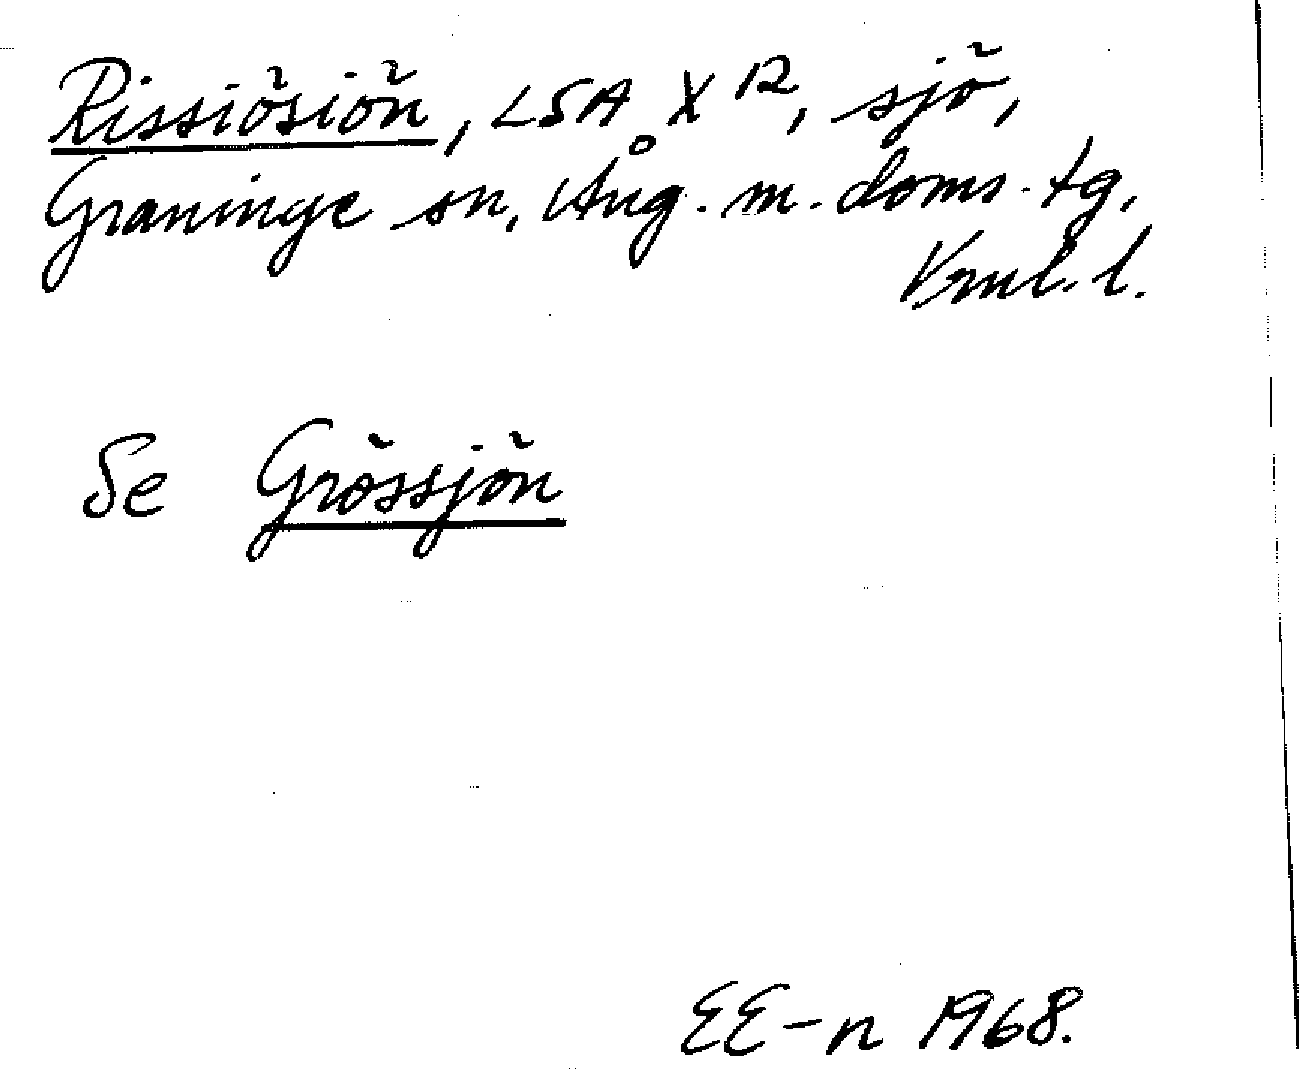 Rissiösiön, LSA X 12, sjö,
Graninge sn, Ång. m. doms. tg,
Vrml. l.
Se Grössjön
EE-n 1968.